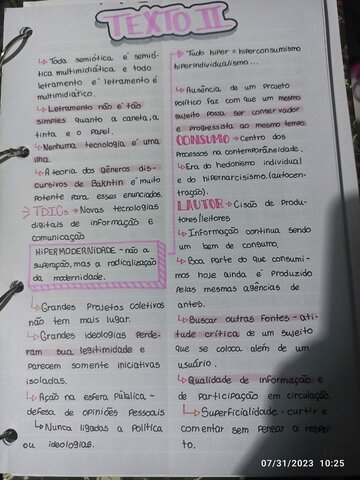 TEXTO II
↳ Toda semiótica é semió-
tica multimidiática e todo
letramento e letramento é
multimidiático.
↳ Letramento não é tão
simples quanto a caneta, a
tinta e o papel.
↳ Nenhuma tecnologia é uma
ilha.
↳ A teoria dos gêneros dis-
cursivos de Bakhtin é muito
potente para esses enunciados.
TDICs → Novas tecnologias
digitais de informação e
comunicação
HIPERMODERNIDADE - não a
superação, mas a radicalização
da modernidade.
↳ Grandes projetos coletivos
não tem mais lugar.
↳ Grandes ideologias perde-
ram sua legitimidade e
parecem somente iniciativas
isoladas.
↳ Ação na esfera pública -
defesa de opiniões pessoais
↳ Nunca ligadas a política
ou ideologias.
→ Tudo hiper = hiperconsumismo
hiperindividualismo...
↳ Ausência de um projeto
político faz com que um mesmo
sujeito possa ser conservador
e progressista ao mesmo tempo.
CONSUMO → Centro dos
processos na contemporaneidade.
↳ Era do hedonismo individual
e do hipernarcisismo. (autocen-
tração).
LAUTOR → Cisão de produ-
tores/leitores
↳ Informação continua sendo
um bem de consumo.
↳ Boa parte do que consumi-
mos hoje ainda é produzido
pelas mesmas agências de
antes.
↳ Buscar outras fontes - ati-
tude crítica de um sujeito
que se coloca além de um
usuário.
↳ Qualidade de informação e
de participação em circulação.
↳ Superficialidade - curtir e
comentar sem pensar a respei-
to.
07/31/2023 10:25